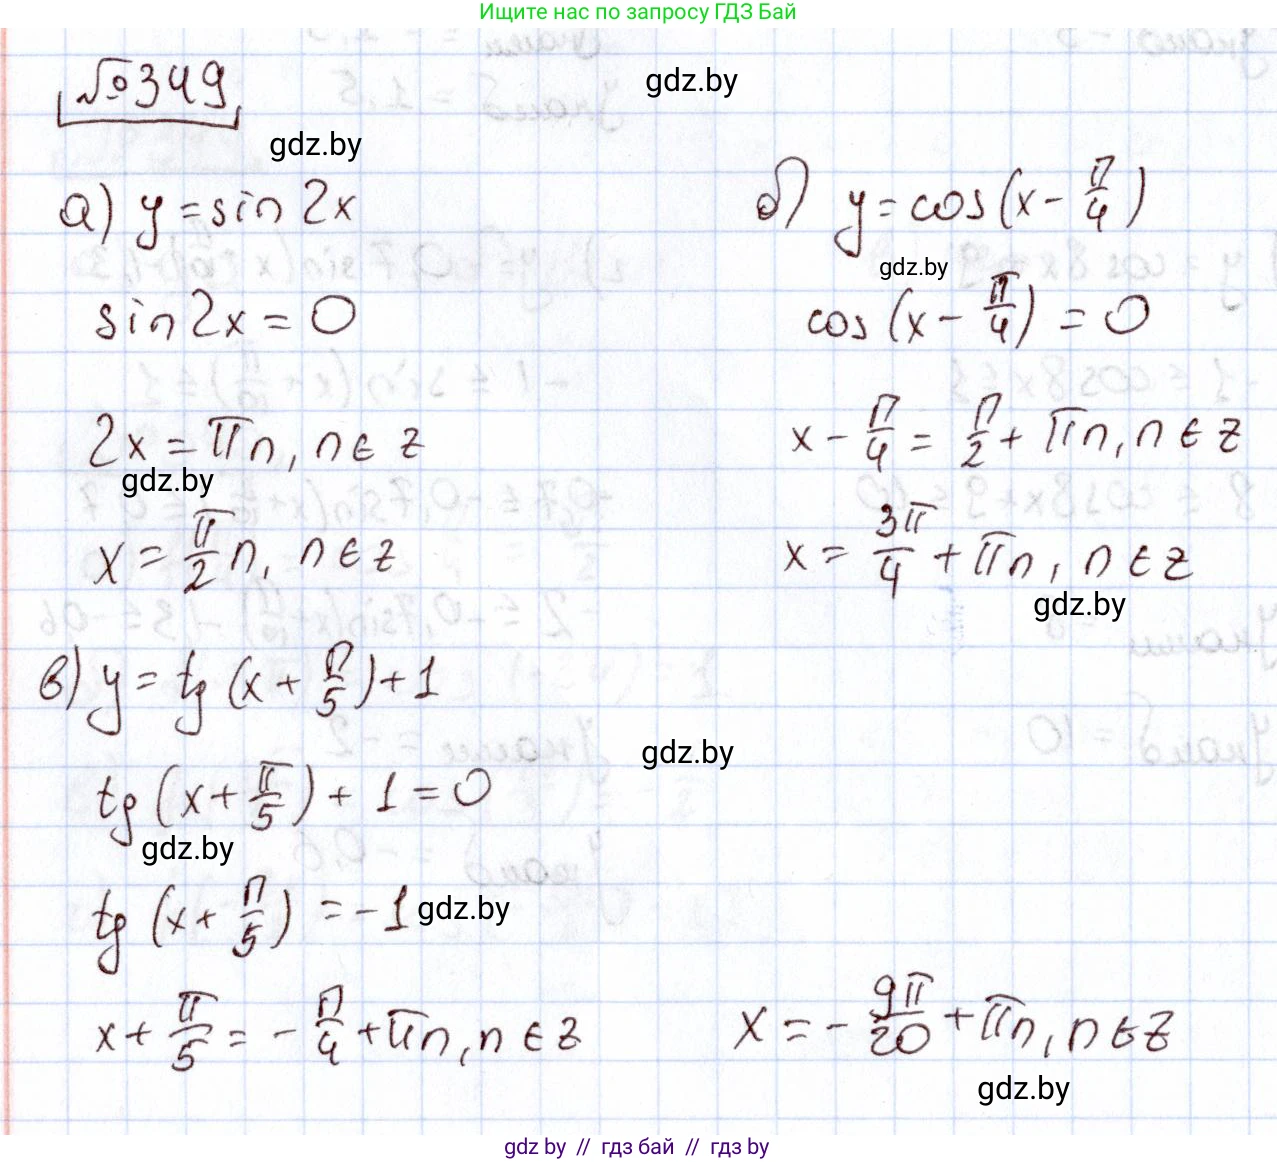 Ищите нас по запросу ГДЗ Бай
№349
gdz.by
gdz.by
а) y = sin 2x
sin 2x = 0
2x = πn, n ∈ z
gdz.by
x = π/2 n, n ∈ z
б) y = cos(x - π/4)
gdz.by
cos(x - π/4) = 0
x - π/4 = π/2 + πn, n ∈ z
x = 3π/4 + πn, n ∈ z
gdz.by
в) y = tg(x + π/5) + 1
gdz.by
tg(x + π/5) + 1 = 0
gdz.by
tg(x + π/5) = -1
gdz.by
x + π/5 = - π/4 + πn, n ∈ z
x = - 9π/20 + πn, n ∈ z
gdz.by
gdz by // гдз бай // гдз by